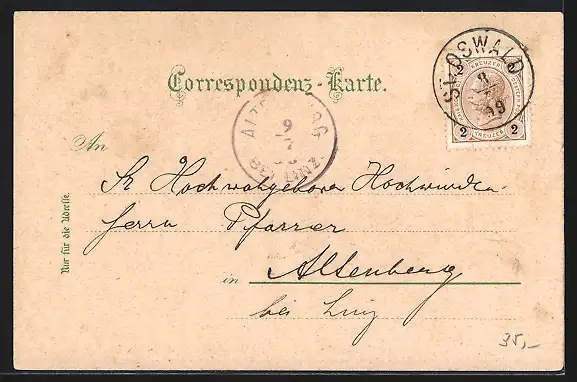 Correspondenz-Karte.
ST. OSWALD
8
99
2 KREUZER 2
ALTENBERG
9
7
BEI LINZ
An
Sr Hochwohlgeboren Hochwürden
Herrn Pfarrer
in Altenberg
bei Linz
Nur für die Adresse.
35,-